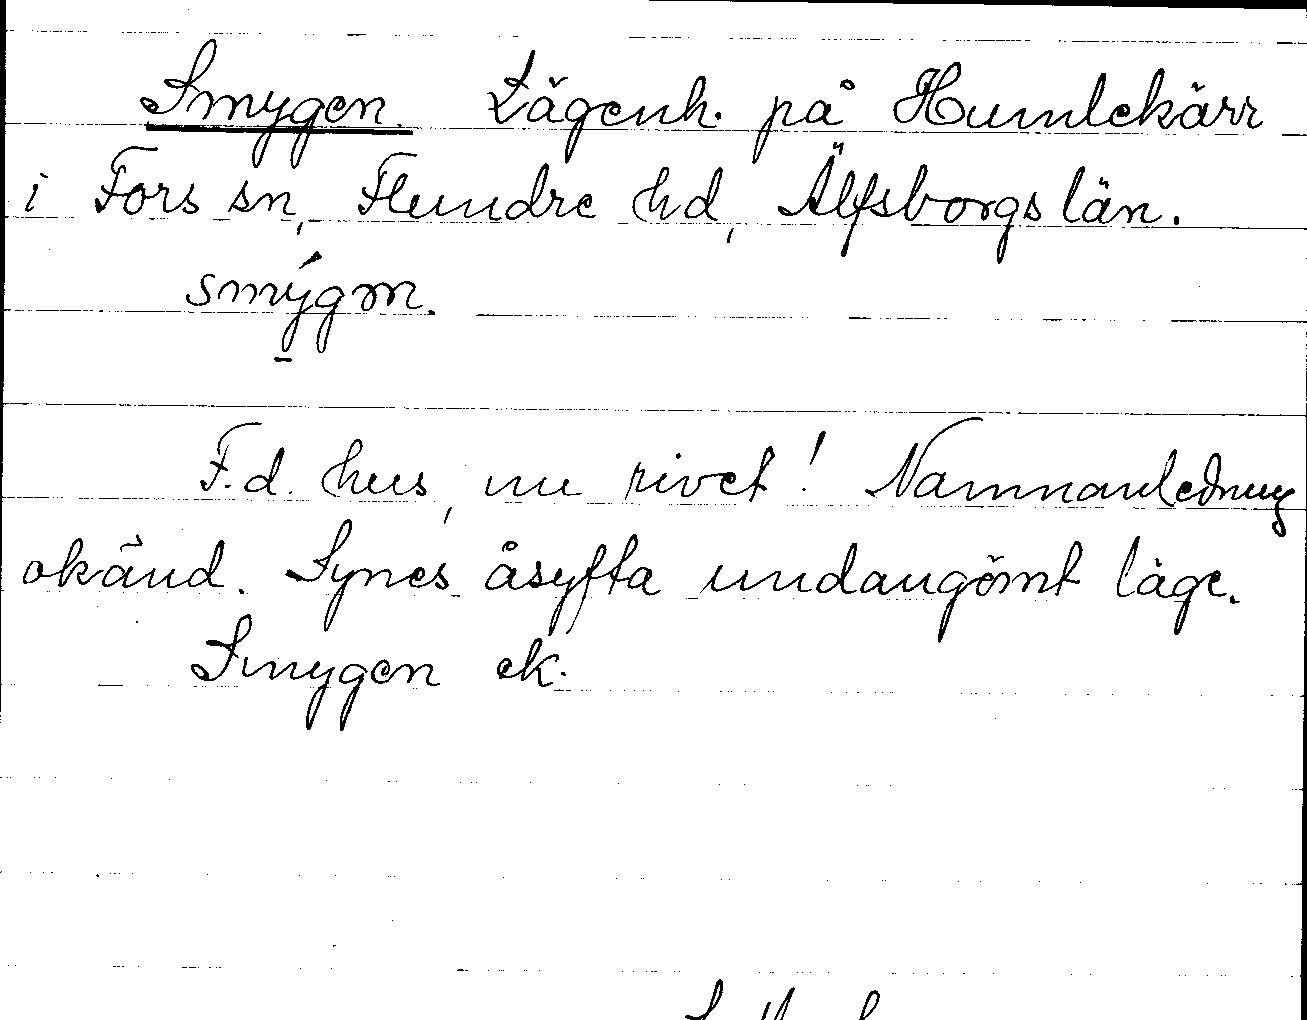 Smygen. Lägenh. på Humlekärr
i Fors sn, Flundre hd, Älfsborgs län.
smý̱gm.
F.d. hus, nu rivet! Namnanledning
okänd. Synes åsyfta undangömt läge.
Smygen ek.